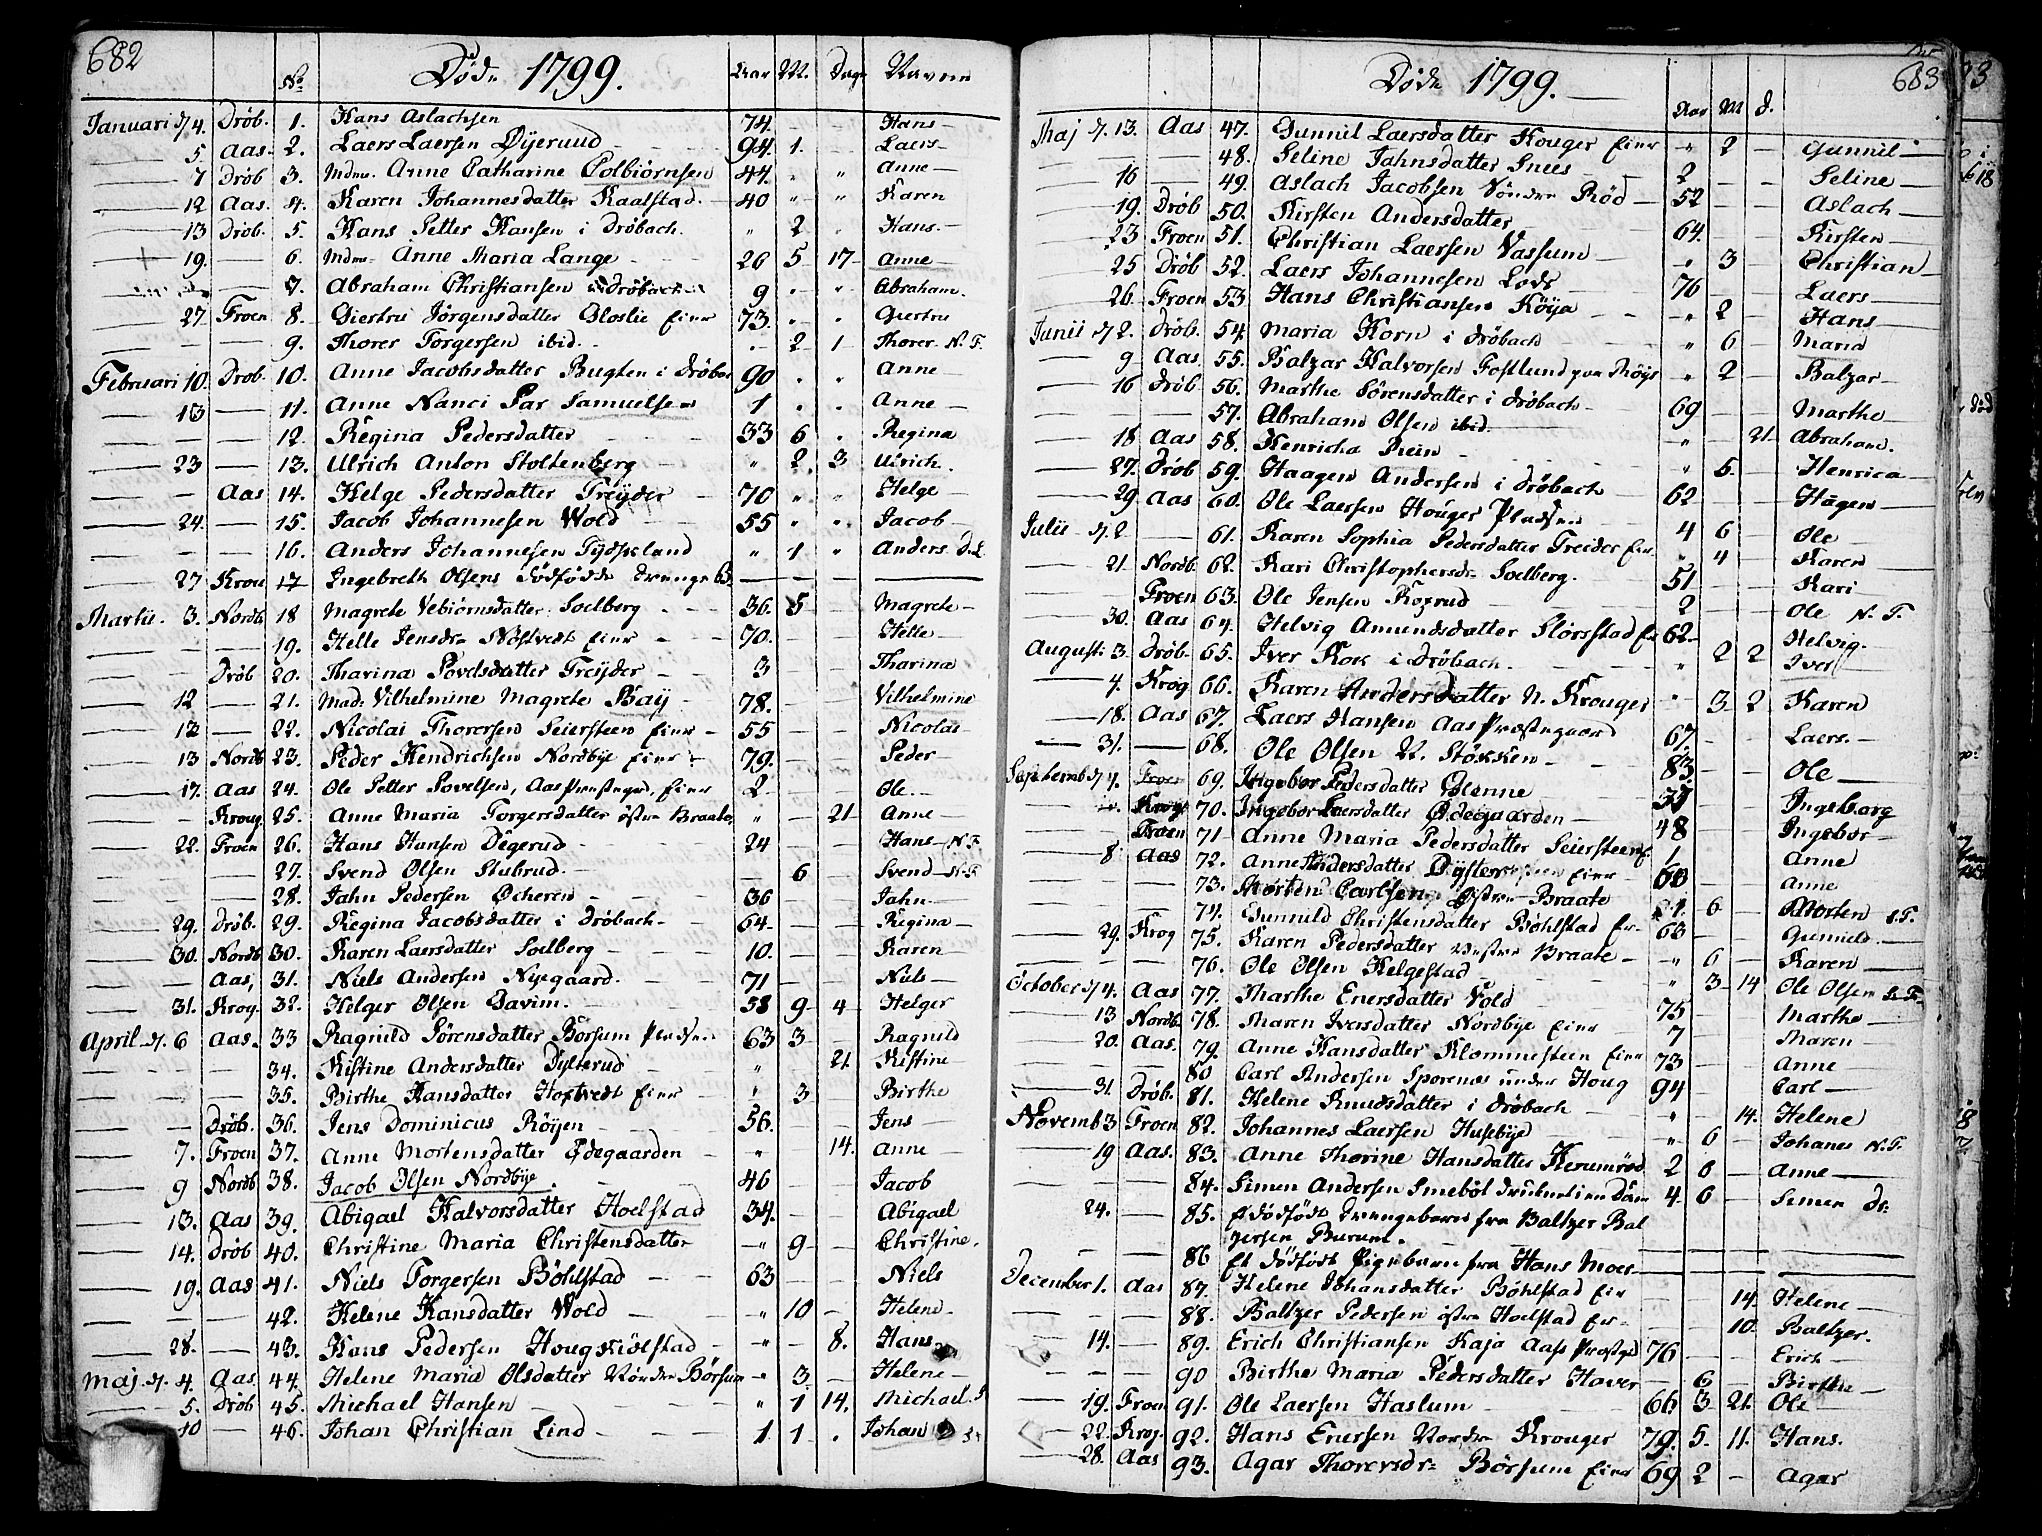 682
Døde 1799.
No Aar M. Dage Navne
Januari d. 4. Dröb. 1. Hans Aslachsen 74. Hans
5. Aas. 2. Laers Laersen Dyerud 94. 1. Laers
7 Dröb 3. Mdme. Anne Catharine Colbiørnsen 44. " " Anne
12 Aas. 4. Karen Johannesdatter Kaalstad. 40 " " Karen
13 Dröb. 5. Hans Petter Hansen i Drøbach. " 2 " Hans.
19. 6. Mdme Anne Maria Lange 26 5 17 Anne
7. Abraham Christiansen Drøbach 9 " " Abraham.
27 Froen 8. Giertru Jörgensdatter Gloslie Eier 73. " " Giertru
9. Thorer Torgersen ibid. 2 1 Thorer N. F.
Februari 10. Drob. 10. Anne Jacobsdatter Bugten i Dröbac 90 " " Anne
13 11. Anne Nanci Par Samuelsen 1 " " Anne
12. Regina Pedersdatter 33 6 " Regina
23 13. Ulrich Anton Stoltenberg " 2 3 Ulrich.
Aas 14. Helge Pedersdatter Treyder 70 " " Helge
24. 15. Jacob Johannesen Wold 55 " " Jacob
16. Anders Johannesen Tydskland " 1 " Anders D.L.
27 Krou 17 Ingebreth Olsens Dödfödde drænge B.
Martii. 3. Nordb 18 Magrete Vebiørnsdatter Solberg 36. 5 Magrete
19. Helle Jensdr. Nöstvedt Eier 70. Helle
Dröb 20. Tharina Povelsdatter Treyder 3 Tharina
12 21. Mad: Vilhelmine Magrete Bay 78. Vilhelmine
12 22. Nicolai Thorersen Seiersteen Eier 55 Nicolai
13 Nordb 23. Peder Hendrichsen Nordbye Eier 79. Peder
17. Aas 24. Ole Petter Povelsen, Aas Præstegd. Eier 2 Ole.
Kroug. 25. Anne Maria Torgersdatter östre Braate " 21 Anne
22. Froen 26. Hans Hansen Degerud 24 Hans N.F.
27. Svend Olsen Stubrud 6 Svend N.F
28. Jahn Pedersen Ocheren 36 Jahn
29. Dröb. 29. Regina Jacobsdatter i Dröbach 64. Regina
30. Nordb 30. Karen Laersdatter Solberg 10. Karen
Aas, 31. Niels Andersen Nyegaard. 71 Niels
31. Krog. 32. Helger Olsen Gavim. 58 9 4 Helger
April d. 6 Aas. 33 Ragnild Sörensdatter Börsum Pladsen 63 3 Ragnild
34. Kistine Andersdatter Dysterud " 21. Kistine
35. Birthe Hansdatter Hoftvedt Eier " 3 Birthe
Dröb. 36. Jens Dominicus Röyen 56. Jens
7. Froen 37. Anne Mortensdatter Ödegaarden " 14. Anne
9 Nordb 38. Jacob Olsen Nordbye 46 Jacob
13. Aas 39. Abigael Halvorsdatter Hoelstad 34. Abigael
14. Dröb 40. Christine Maria Christensdatter " 9 Christine.
19. Aas 41. Niels Torgersen Böhlstad 63 Niels
42. Helene Hansdatter Wold " 10 Helene
28. 43. Hans Pedersen Houg Kiölstad " 8. Hans
Maj d. 4. Aas 44. Helene Maria Olsdatter Nöndre Börsum " 3. Helene
5. Dröb 45. Michael Hansen " 1 14. Michael.
10 46. Johan Christian Lind 1 1 Johan
683
Døde 1799.
Aar M d.
Maj d. 13. Aas 47. Gunnil Laersdatter Kouger Eier " 2 Gunnil
48. Seline Jahnsdatter Snees 2 Seline
16 49. Aslach Jacobsen Nöndre Röd 52 Aslach
19. Dröb 50. Kirsten Andersdatter 64. Kirsten
23 Froen 51. Christian Laersen Vassum " 3 Christian
25 Dröb 52. Laers Johannesen Lods 76 Laers
26. Froen 53 Hans Christiansen Köya " 2 Hans
Junii d. 2. Dröb. 54. Maria Korn i Dröbach " 6 Maria
9 Aas. 55. Balzar Halvorsen Fostlund paa Röys " 2 Balzar
16 Dröb 56. Marthe Sörensdatter i Dröbach 69 Marthe
57. Abraham Olsen ibid. " 21 Abraham.
18 Aas 58. Henricha Rein " 5. Henrica
27. Dröb 59. Haagen Andersen i Dröbach 62 Hagen
29. Aas 60. Ole Laersen Houger Pladsen 4 6 Ole
Julii d. 2 61. Karen Sophia Pedersdatter Treider Eier " 4 Karen
21. Nordb. 62. Kari Christophersdr. Solberg. 51 Kari
Froen 63. Ole Jensen Roxrud 2 Ole N. F.
30. Aas 64. Helvig Amundsdatter Störsstad Ei 62 Helvig.
Augusti 3. Dröb. 65. Iver Kok i Dröbach. " 2 2 Iver
4. Krog 66. Karen Andersdatter N. Krouger " 3 2 Karen
18. Aas 67. Laers Hansen Aas Præstegaard 67. Laers.
31. 68. Ole Olsen V. Stökken 83. Ole
Septemb d. 7. Froen 69. Ingebor Pedersdatter Glenne 37 Ingeborg
Krog 70. Ingebor Laersdatter Ödegaarden 48 Ingebor
Froen 71 Anne Maria Pedersdatter Seiersteen E 1 Anne
8. Aas 72. Anne Andersdatter Dyster Eier 60 Anne
73. Morten Carlsen Östre Braate 6 Morten
74. Gunnild Christensdatter Böhlstad Er. 63 Gunnild.
29. Krog 75. Karen Pedersdatter Vestre Braate " 6 Karen
76. Ole Olsen Helgestad " 3 14 Ole Olsen
October d. 4. Aas 77. Marthe Enersdatter Vold 75 Marthe
13 Nordb. 78. Maren Iversdatter Nordbye Eier 7 Maren
20. Aas. 79. Anne Hansdatter Klommesteen Eier 73 Anne
80 Carl Andersen Sporenæs under Houg 94 Carl
31. Dröb. 81. Helene Knudsdatter i Dröbach " 14. Helene
Novemb 3 Froen 82. Johannes Laersen Husebye " 6 Johanes N.F.
19 Aas. 83. Anne Thorine Hansdatter Kerumröd 2 6 Anne
84. Simen Andersen Smeböl 4. 6 Simen
24. 85. Et dödfödt Drengebarn fra Baltzer Bal
gersen Burum.
86 Et dödfödt Pigebarn fra Hans Moer
December 1. Aas 87. Helene Johansdatter Böhlstad Eier 14. Helene
88. Baltzer Pedersen östre Hoelstad Er. 10. Baltzer.
14. 89. Erich Christiansen Kaja Aass Præstegd 76 Erich
90 Birthe Maria Pedersdatter Haver 6 Birthe
19. Froen 91. Ole Laersen Haslum 66 3 21. Ole
22. Krog. 92. Hans Enersen Nordre Krouger 79. 5. 11. Hans.
28. Aas 93. Agar Thorersdr. Börsum Eier 69 2 Agar